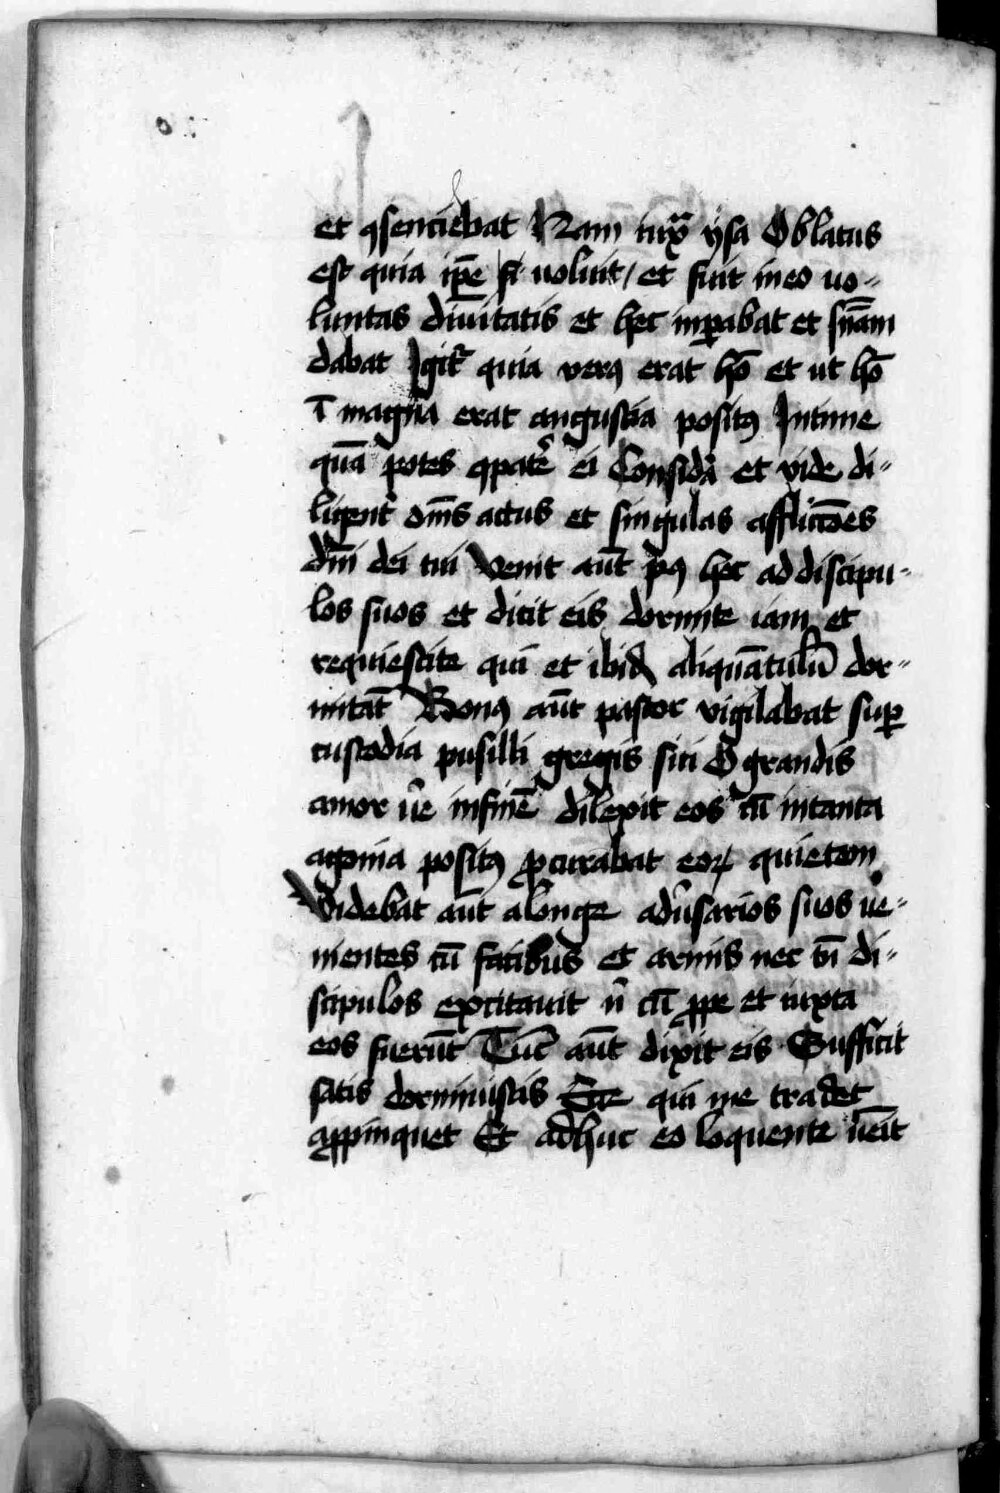 et ꝯsenciebat Nam iuxͣ ysa Oblatus
est quia ip̄e sꝫ uoluit / et fuit in eo uo-
luntas diuītatis et hec inꝑabat et sn̄am
dabat Igit᷑ quia verꝰ erat hō et ut hō
ī magna erat angustia positꝰ Intime
quā potes ꝯpatēr ei Considā et vide di-
ligent᷑ om̄s actus et singulas afflicōes
dn̄i dei tui Venit aūt pꝰ hec ad discipu-
los suos et dicit eis dormite iam et
requiescite qui et ibid aliquātulū dor-
mitāt Bonꝰ aūt pastor vigilabat suꝑ
custodia pusilli gregis sui O grandis
amor u᷑e in finē dilexit eos cū in tanta
agonia positꝰ ꝓcurabat eoꝝ quietem
Videbat aūt a longe adu᷑sarios suos ue-
nientes cū facibus et armis nec tn̄ di-
scipulos excitauit n̄ cū ꝓpe et iuxta
eos fuerūt Tūc aūt dixit eis Sufficit
satis dormiuistis Ecce qui me tradet
aꝓpinquet Et adhuc eo loquente uēit